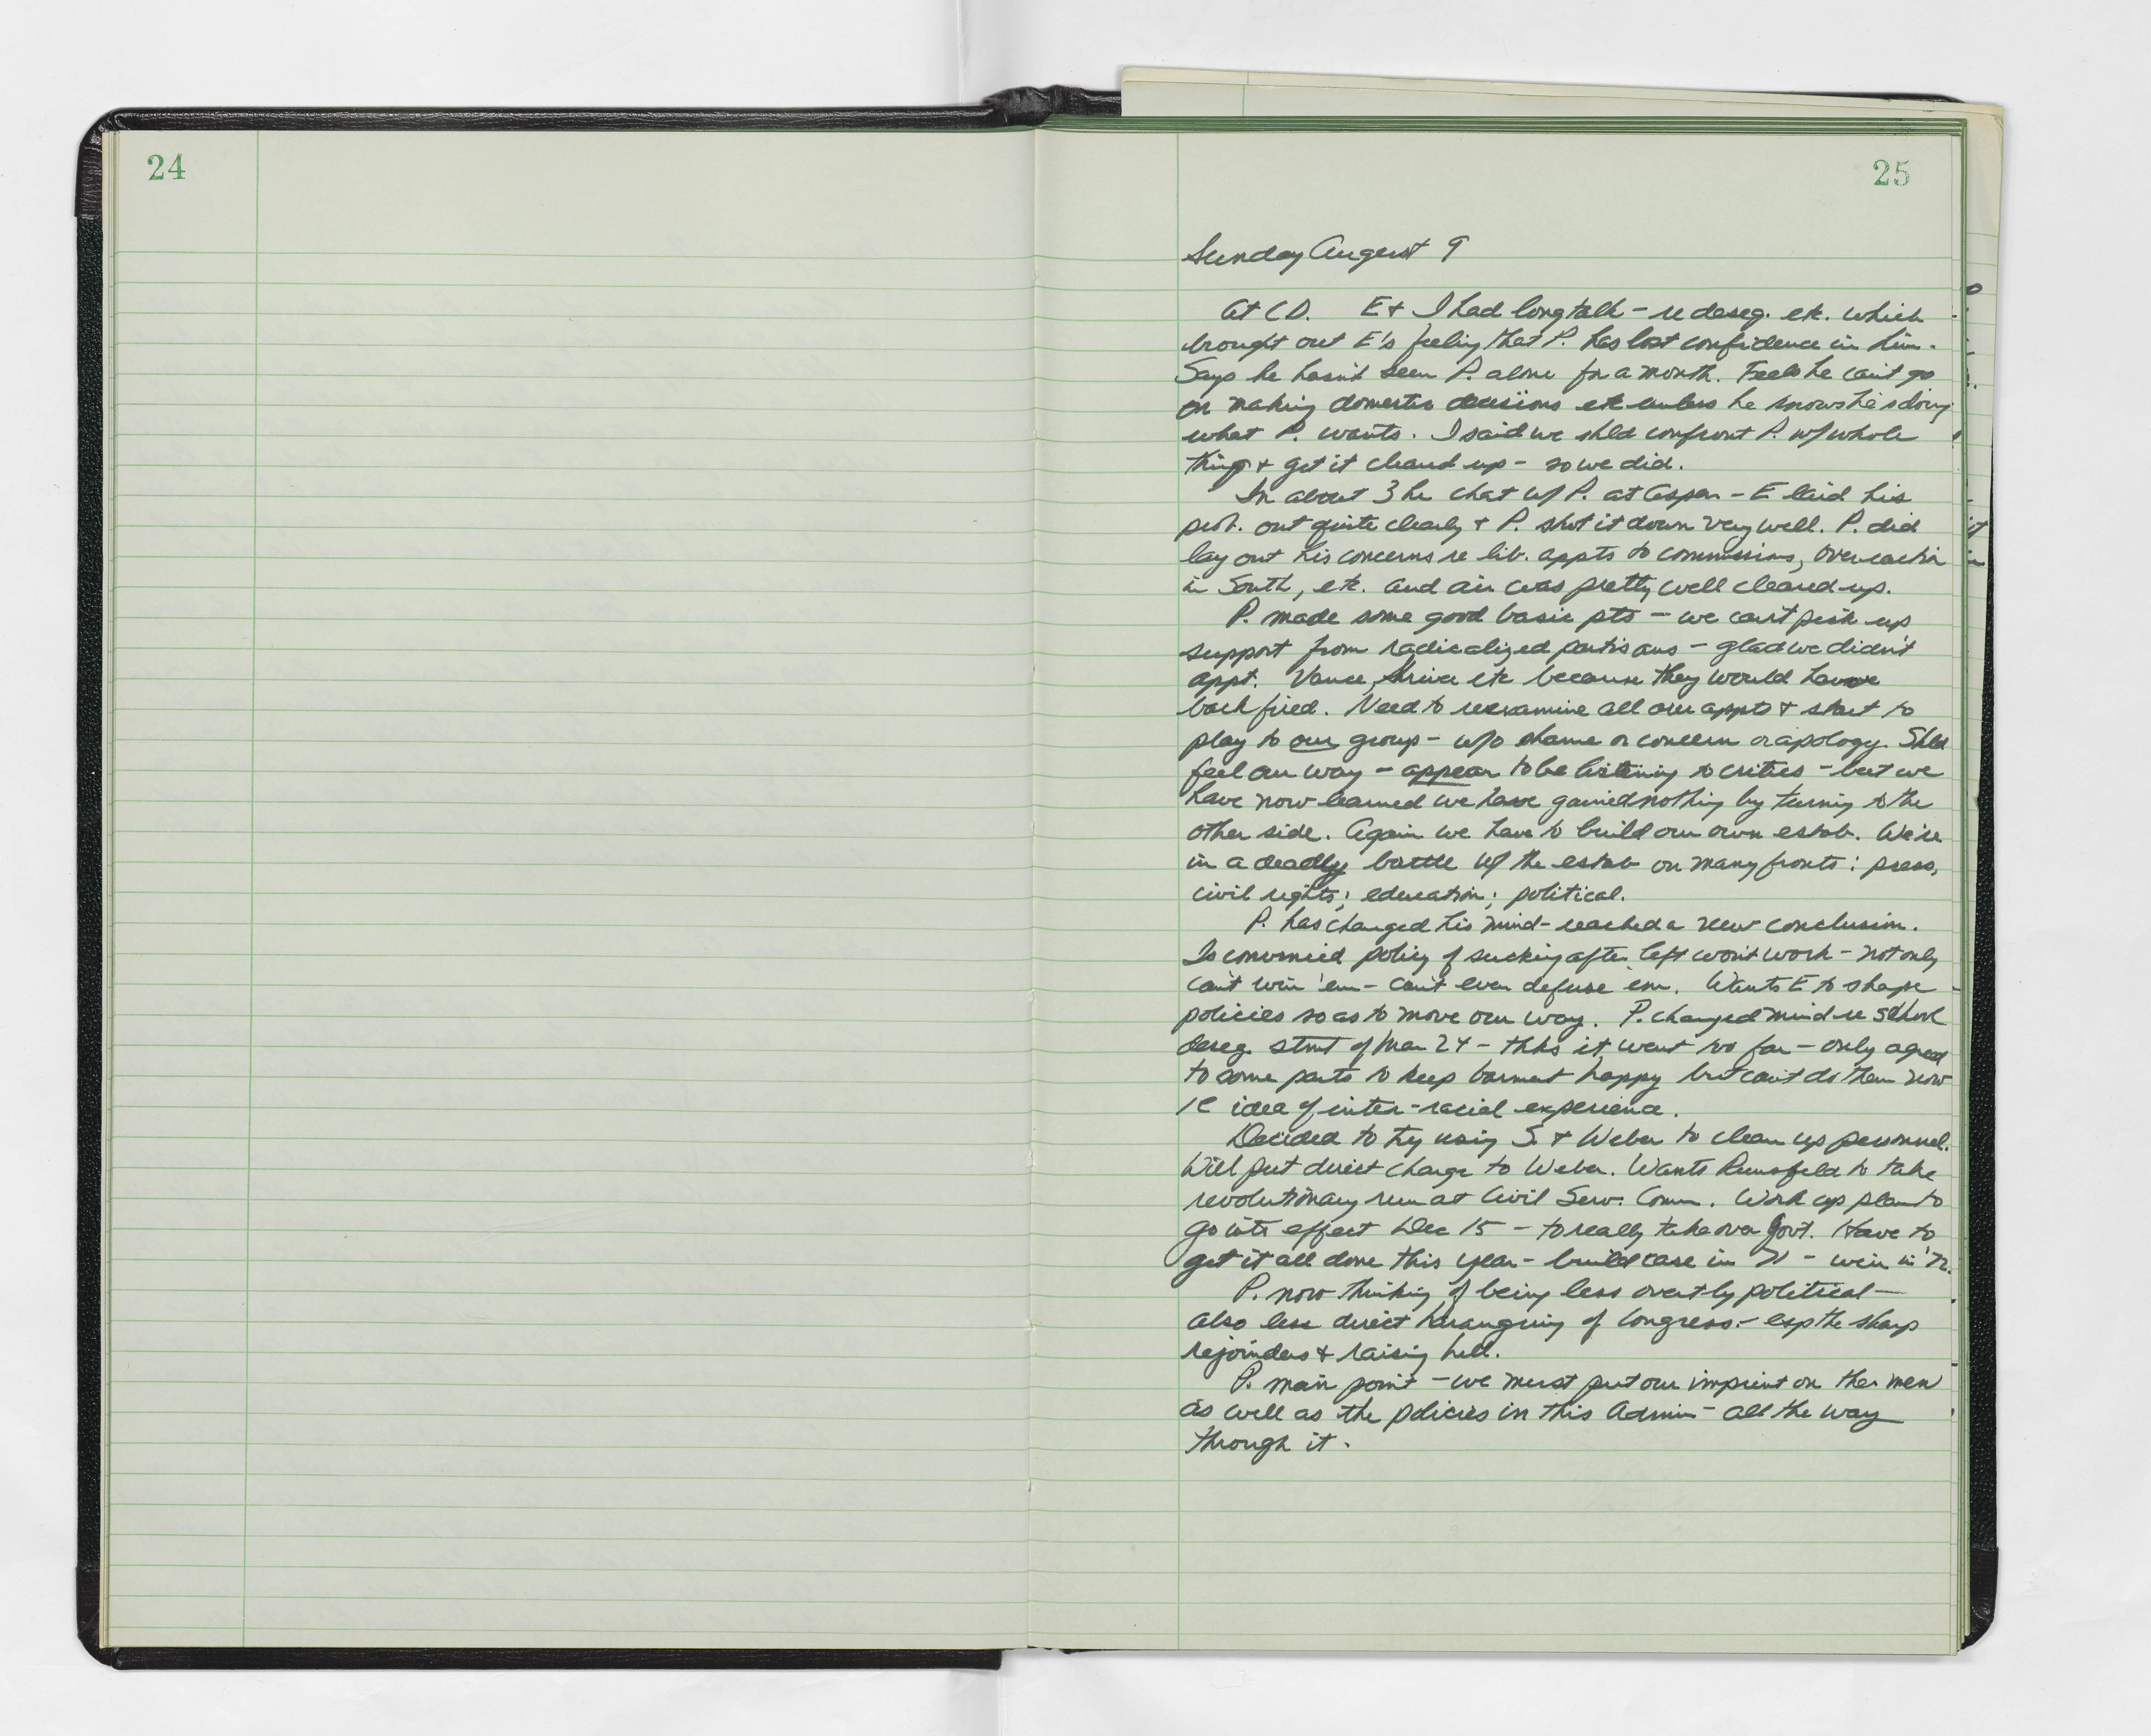 24
25
Sunday August 9
At CD. E + I had long talk - re deseg. etc. which
brought out E's feeling that P. has lost confidence in him.
Says he hasn't seen P. alone for a month. Feels he can't go
on making domestic decisions etc unless he knows he's doing
what P. wants. I said we shld confront P. w/ whole
thing + get it cleared up - so we did.
In about 3 hr chat w/ P. at Aspen - E laid his
prob. out quite clearly + P. shot it down very well. P. did
lay out his concerns re lib. appts to commissions, overreaction
in South, etc. and air was pretty well cleared up.
P. made some good basic pts - we can't pick up
support from radicalized partisans - glad we didn't
appt. Vance, Shriver etc because they would have
backfired. Need to reexamine all our appts + start to
play to our group - w/o shame or concern or apology. Shld
feel our way - appear to be listening to critics - but we
have now learned we have gained nothing by turning to the
other side. Again we have to build our own estab. We're
in a deadly battle w/ the estab on many fronts: press,
civil rights; education; political.
P. has changed his mind - reached a new conclusion.
Is convinced policy of sucking after left won't work - not only
can't win 'em - can't even defuse 'em. Wants E to shape
policies so as to move our way. P. changed mind re school
deseg. stmt of Mar 24 - thks it went too far - only agreed
to some parts to keep Garment happy but can't do them now
ie idea of inter-racial experience.
Decided to try using S. + Weber to clean up personnel.
Will put direct charge to Weber. Wants Rumsfeld to take
revolutionary run at Civil Serv. Comm. Work up plan to
go into effect Dec 15 - to really take over Govt. Have to
get it all done this year - build case in 71 - win in '72.
P. now thinking of being less overtly political -
also less direct haranguing of Congress - esp the sharp
rejoinders + raising hell.
P. main point - we must put our imprint on the men
as well as the policies in this Admin - all the way
through it.